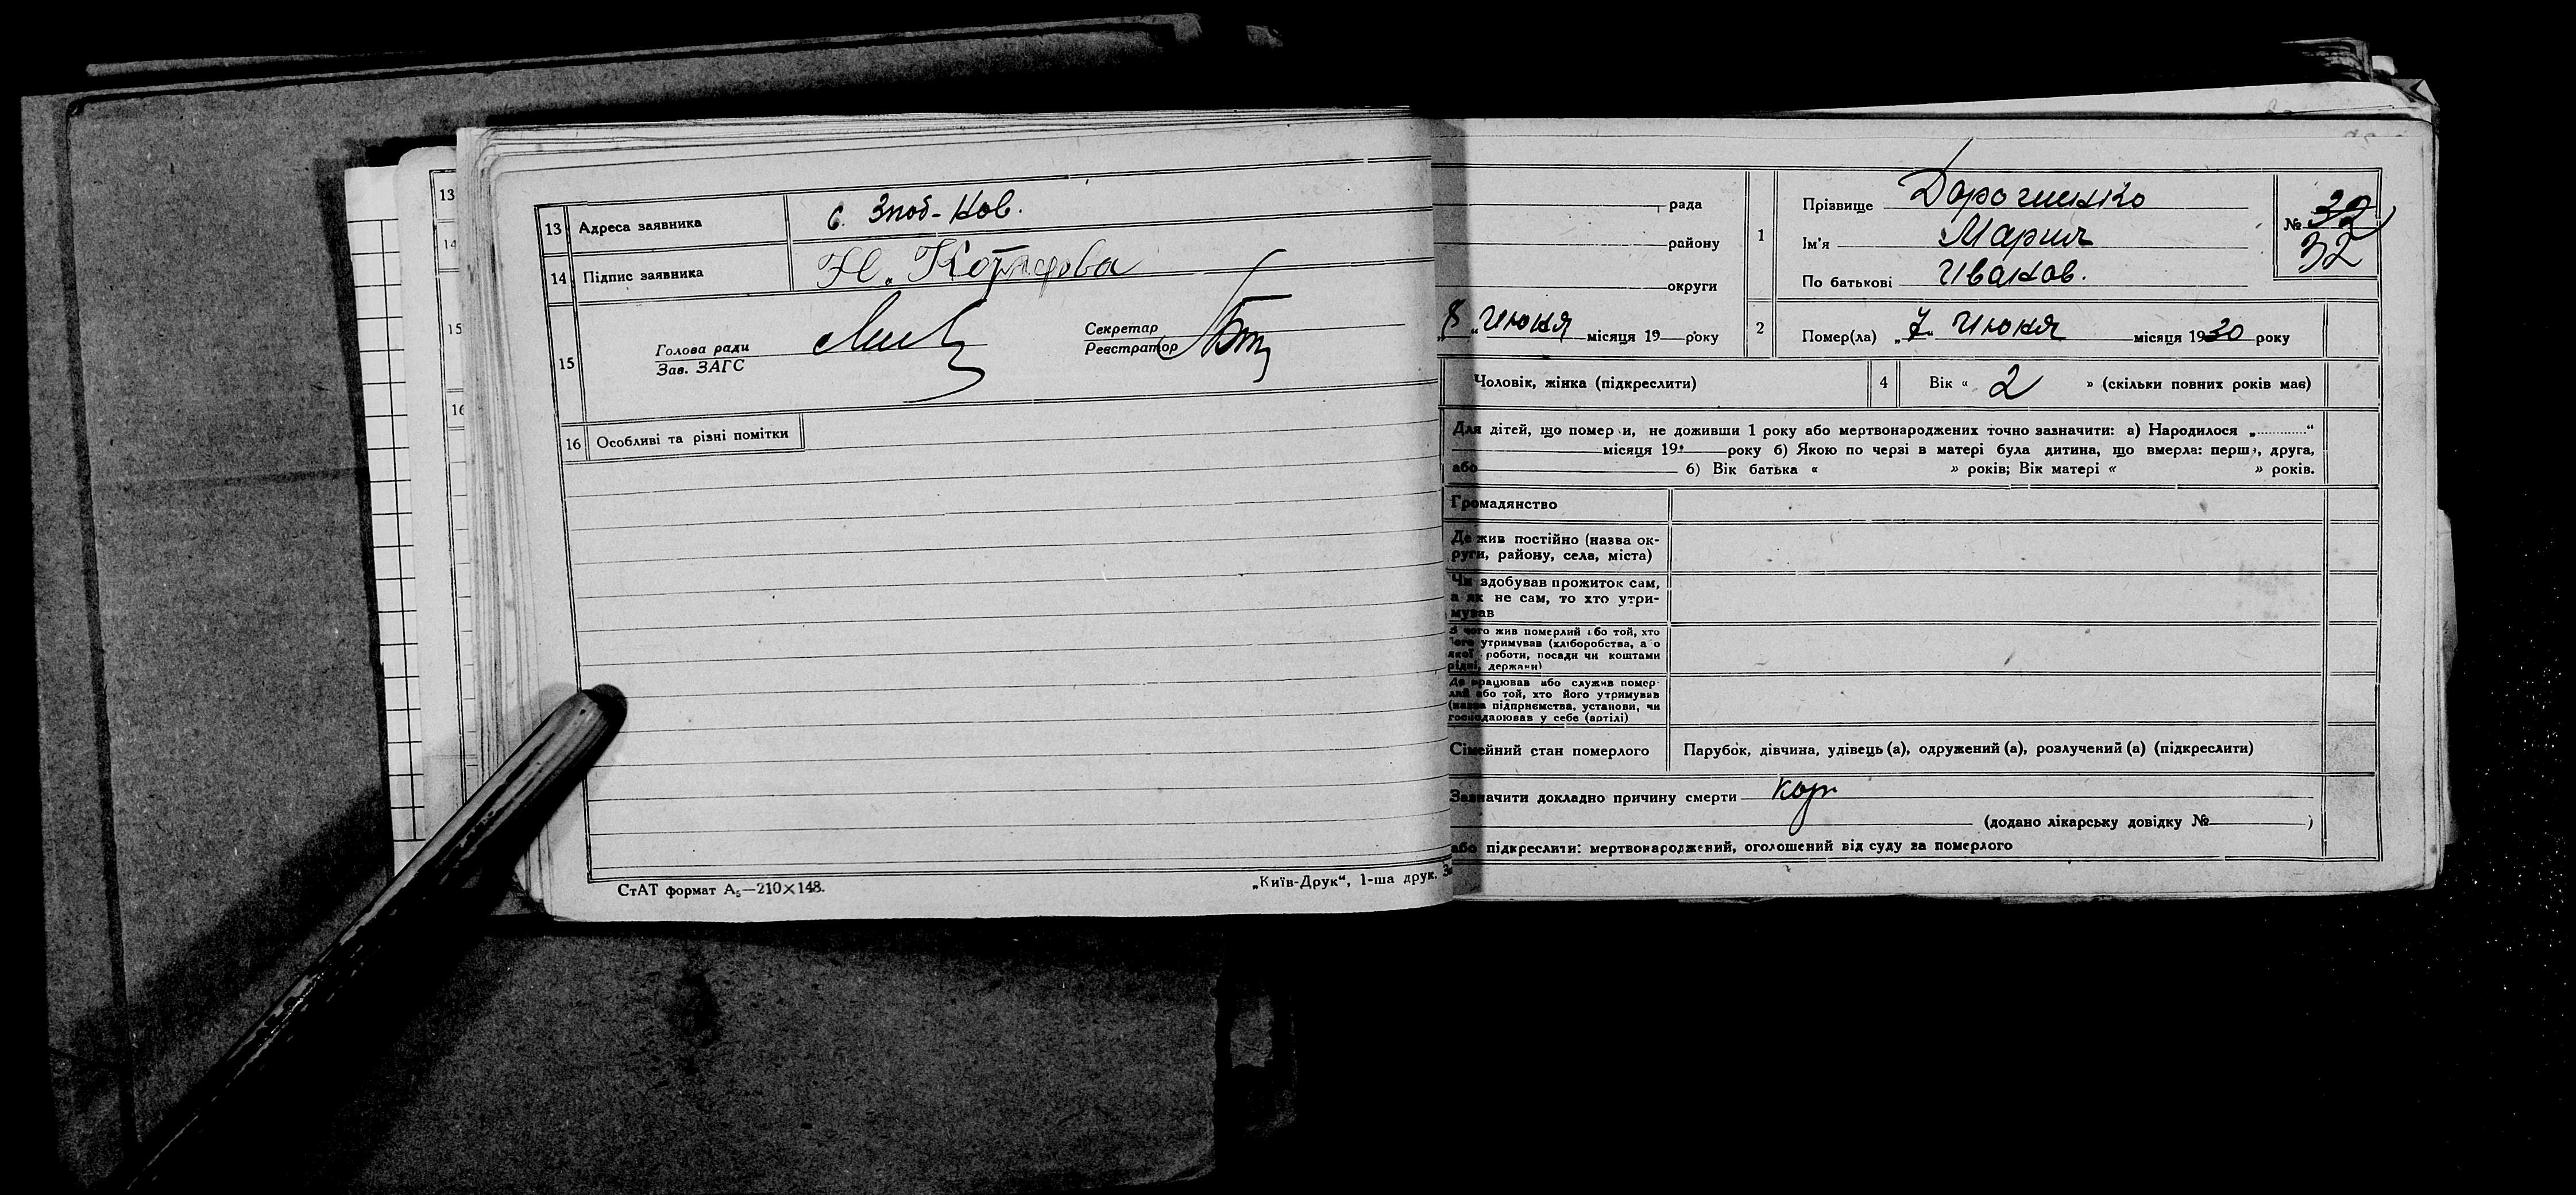 13 Адреса заявника с. Зноб-Нов.
14 Підпис заявника Н.
15 Голова ради
Зав. ЗАГС
Секретар
Реєстратор
16 Особливі та різні помітки
СтАТ формат А₅—210×148.
„Київ-Друк“, 1-ша друк.
13
14
15
16
рада
району
округи
8 „ Июня місяця 19 року
1 Прізвище Дорошенко
Ім'я Мария
По батькові Иванов.
№ 32
32
2 Помер(ла) „7„ Июня місяця 1930 року
Чоловік, жінка (підкреслити)
4 Вік « 2 » (скільки повних років має)
Для дітей, що померли, не доживши 1 року або мертвонароджених точно зазначити: а) Народилося „............“
місяця 19 року б) Якою по черзі в матері була дитина, що вмерла: перша, друга,
або 6) Вік батька « » років; Вік матері « » років.
Громадянство
Де жив постійно (назва ок-
руги, району, села, міста)
Чи здобував прожиток сам,
а як не сам, то хто утри-
мував
З чого жив померлий або той, хто
його утримував (хліборобства, або
якої роботи, посади чи коштами
рідні, держави)
Де працював або служив помер-
лий або той, хто його утримував
(назва підприємства, установи, чи
господарював у себе (артілі)
Сімейний стан померлого
Парубок, дівчина, удівець (а), одружений (а), розлучений (а) (підкреслити)
Зазначити докладно причину смерти Кор
(додано лікарську довідку № )
або підкреслити: мертвонароджений, оголошений від суду за померлого